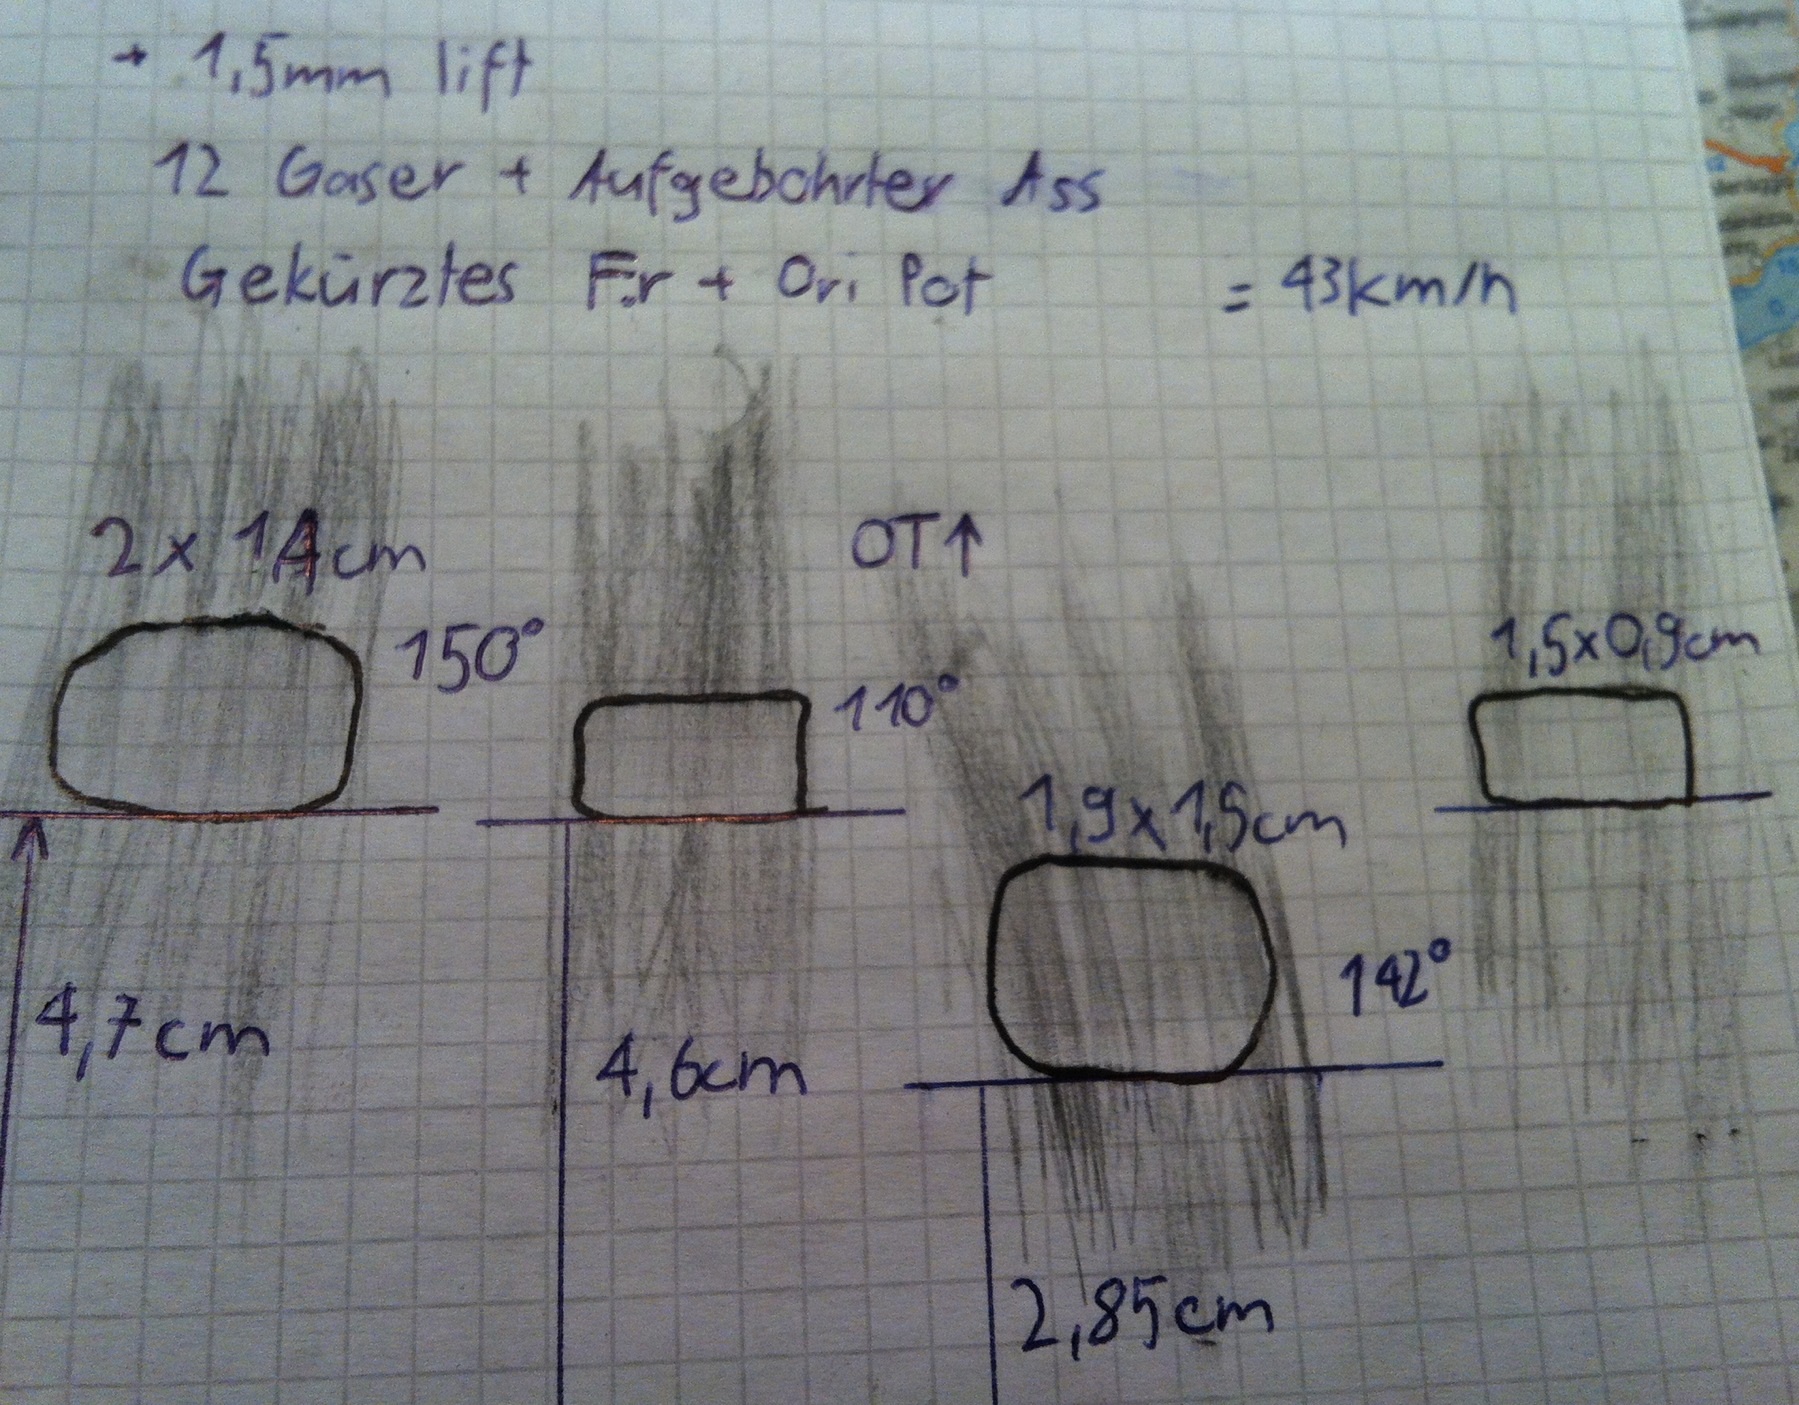 → 1,5mm lift
12 Gaser + Aufgebohrter Ass
Gekürztes F.r + Ori Pot = 43km/h
OT↑
2 x 14cm
150°
110°
1,5x0,9cm
1,9x1,5cm
142°
4,7cm
4,6cm
2,85cm